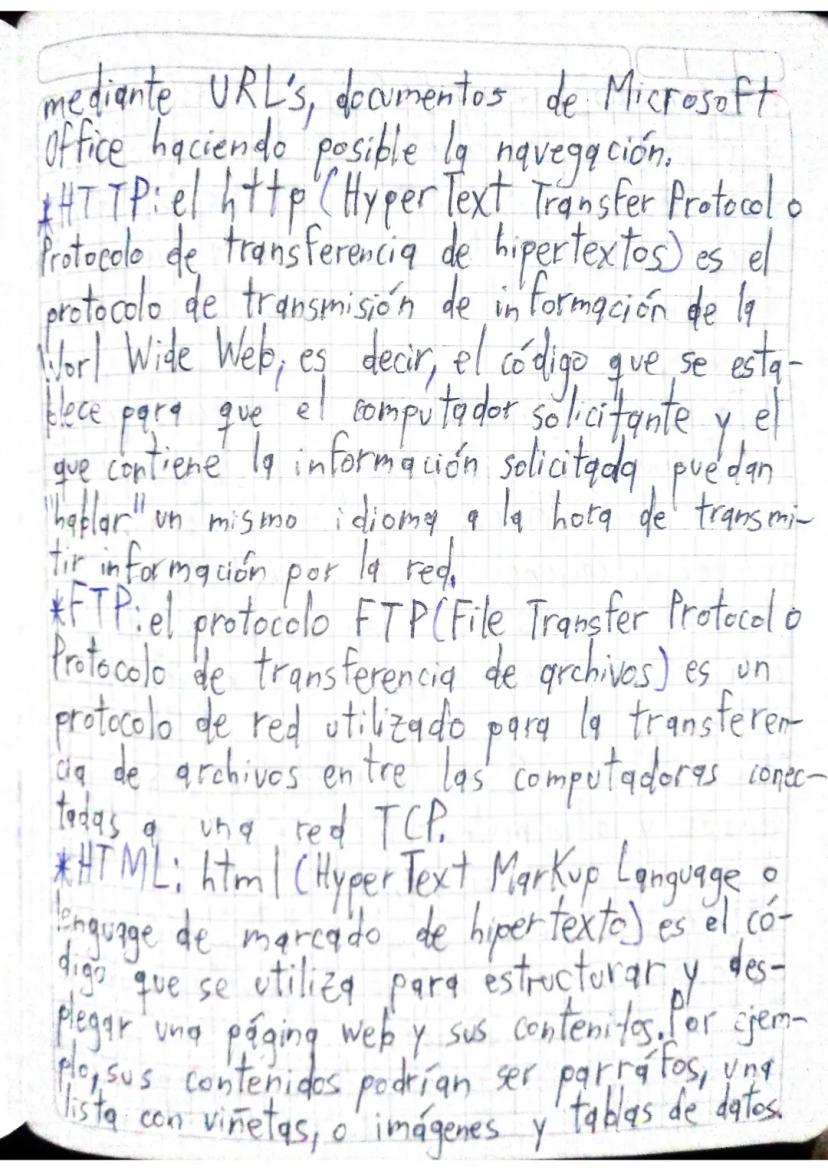 mediante URL's, documentos de Microsoft
Office haciendo posible la navegación.
*HTTP: el http (HyperText Transfer Protocol o
Protocolo de transferencia de hipertextos) es el
protocolo de transmisión de información de la
Worl Wide Web, es decir, el código que se esta-
blece para que el computador solicitante y el
que contiene la información solicitada puedan
"hablar" un mismo idioma a la hora de transmi-
tir información por la red.
*FTP: el protocolo FTP (File Transfer Protocol o
Protocolo de transferencia de archivos) es un
protocolo de red utilizado para la transferen-
cia de archivos entre las computadoras conec-
tadas a una red TCP.
*HTML: html (HyperText MarKup Language o
lenguage de marcado de hipertexto) es el có-
digo que se utiliza para estructurar y des-
plegar una página web y sus contenidos. Por ejem-
plo, sus contenidos podrían ser parráfos, una
lista con viñetas, o imágenes y tablas de datos.